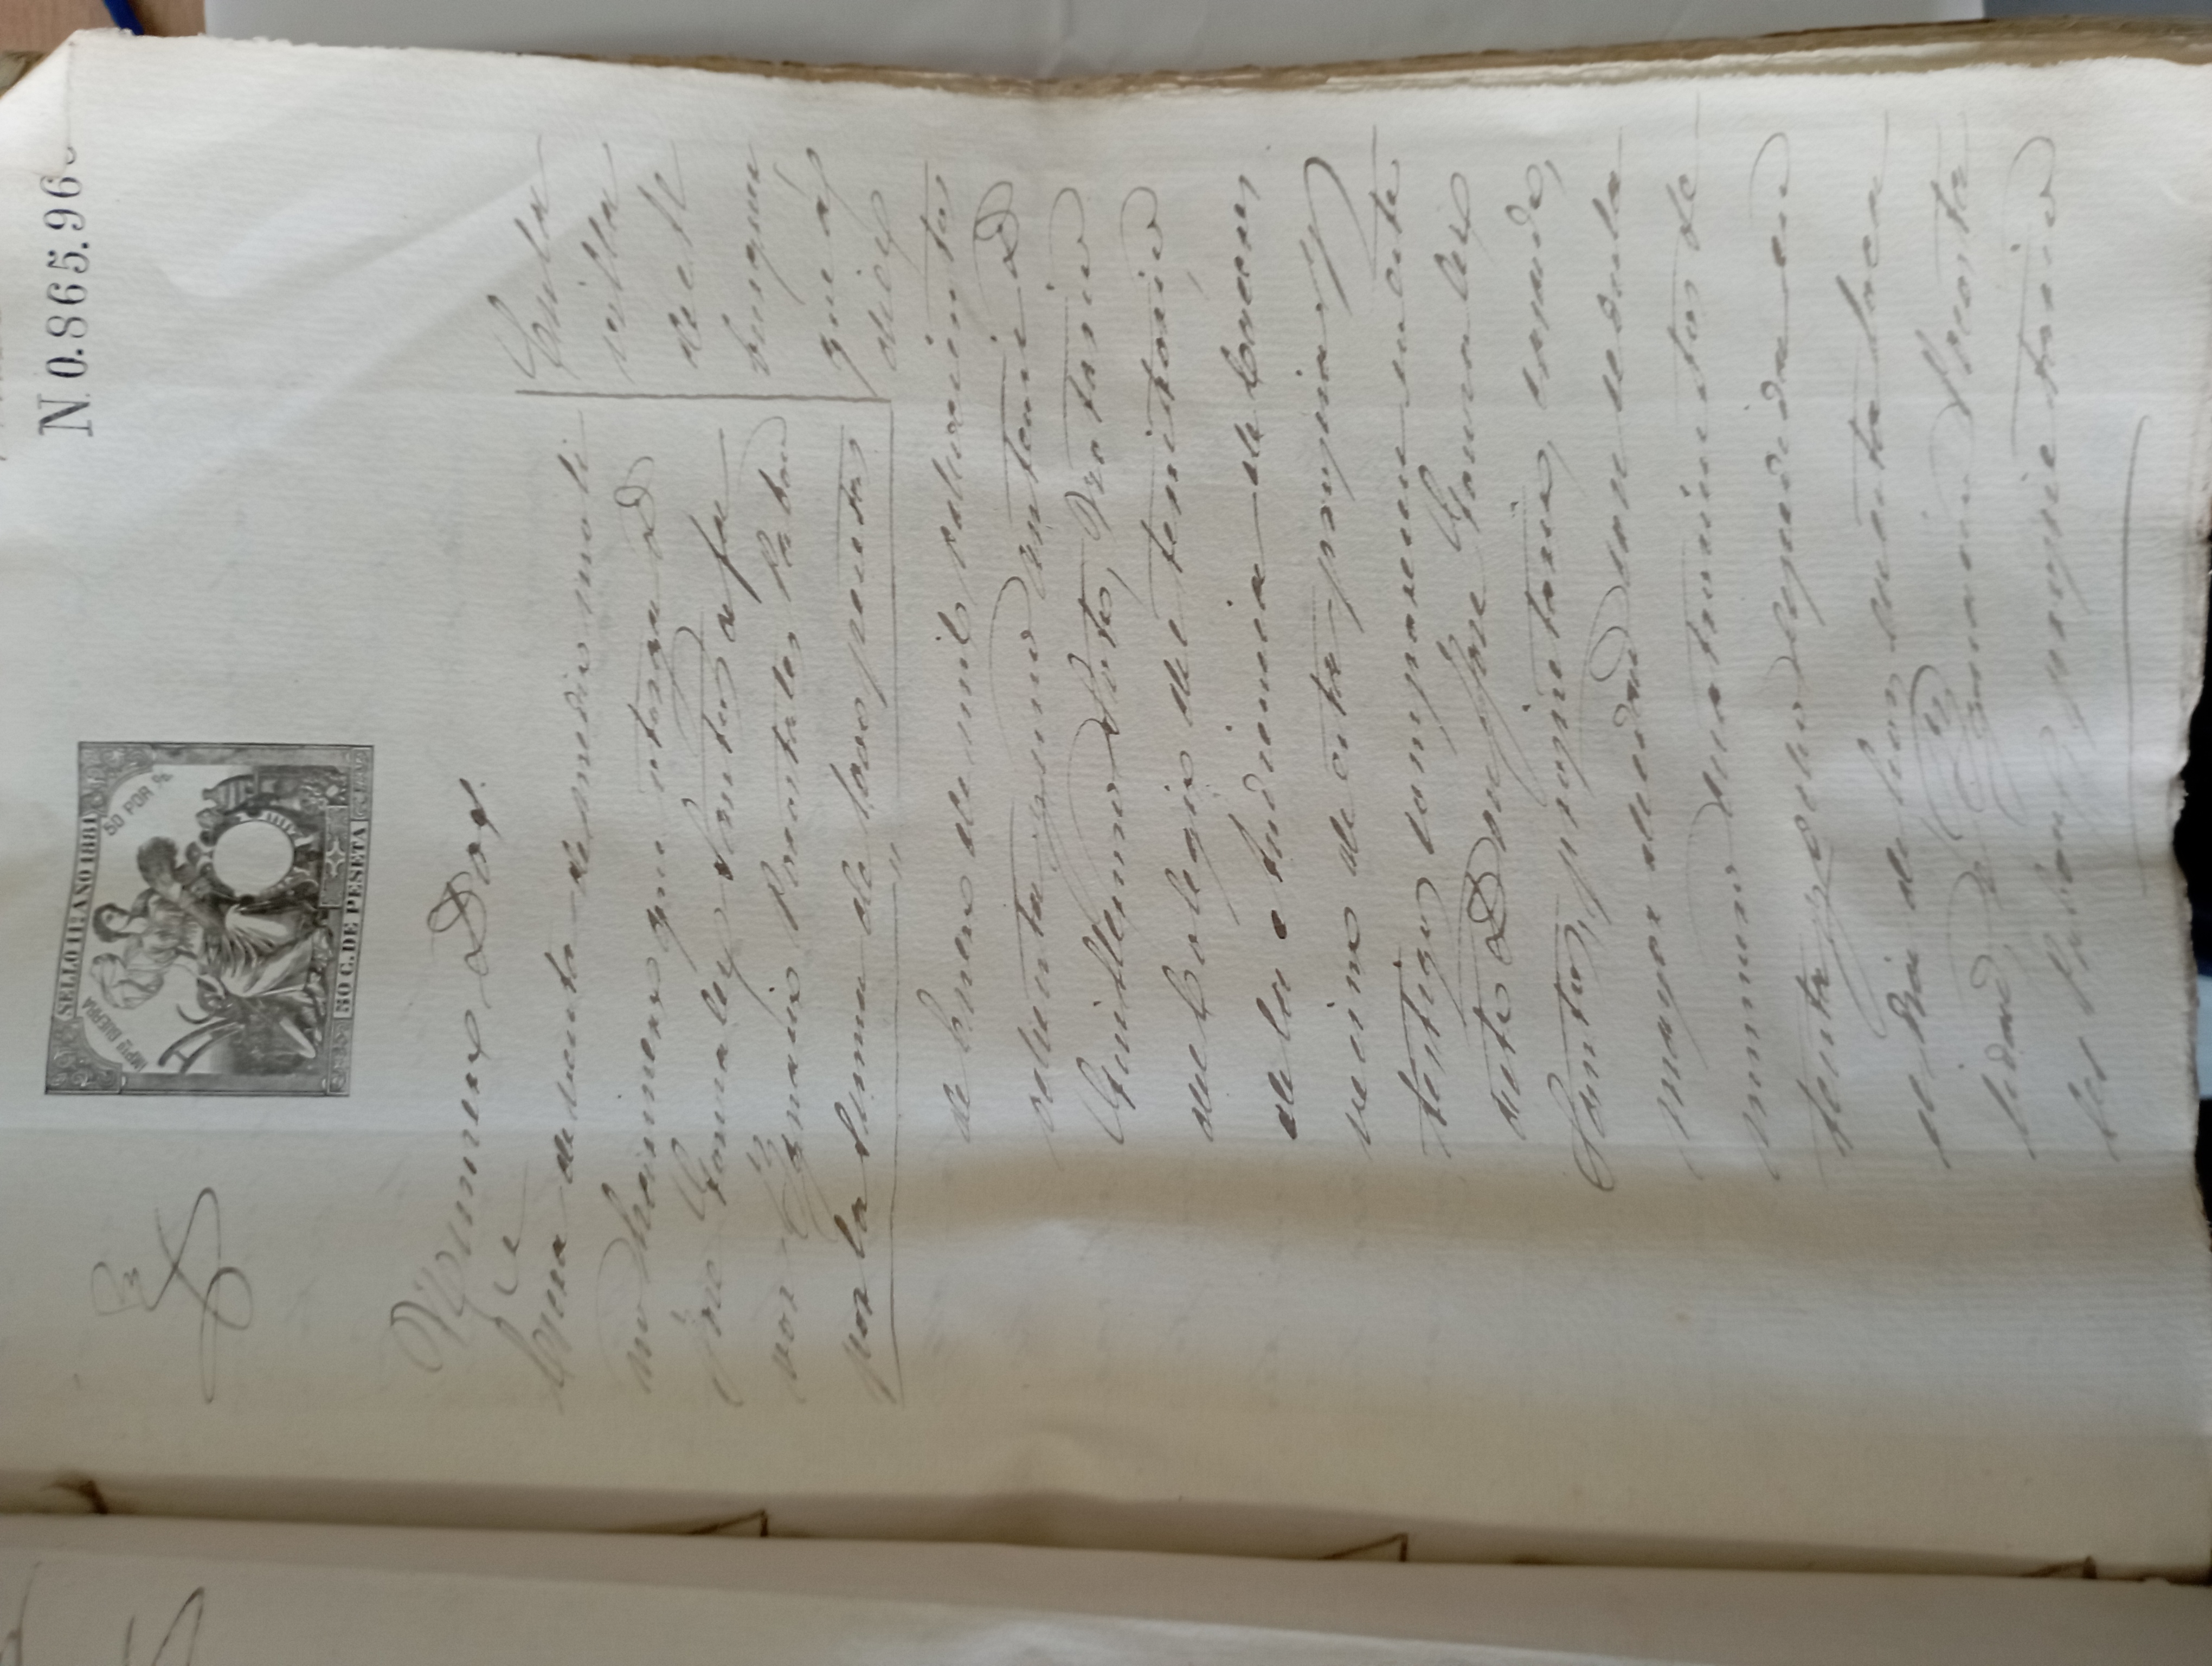 N. 0.865.96
SELLO 11º AÑO 1881
IMPTO GUERRA
50 POR %
50 C. DE PESETA
Numero Dos.
Esra de venta de medio moli
no harinero que otorga D
Jose Gonzalez Santos a fa
vor Ygnacio Pocostales Pabon
por la suma de 1000 pesetas
En la
villa
de Al
burquer
que á
diez
de Enero de mil ochocientos
ochenta y uno ante mi D
Guillermo Soto, Notario
del Colegio del territorio
de la Audiencia de Cáceres,
vecino de esta propia y
testigos comparecen en este
acto Don Jose Gonzalez
Santos, propietario, casado,
mayor de edad con cedula
numero cuatrocientos se
tenta y ocho espedida en
el dia de hoy en esta loca
lidad, y Ygnacio Pocosta
les Pabon, propietario